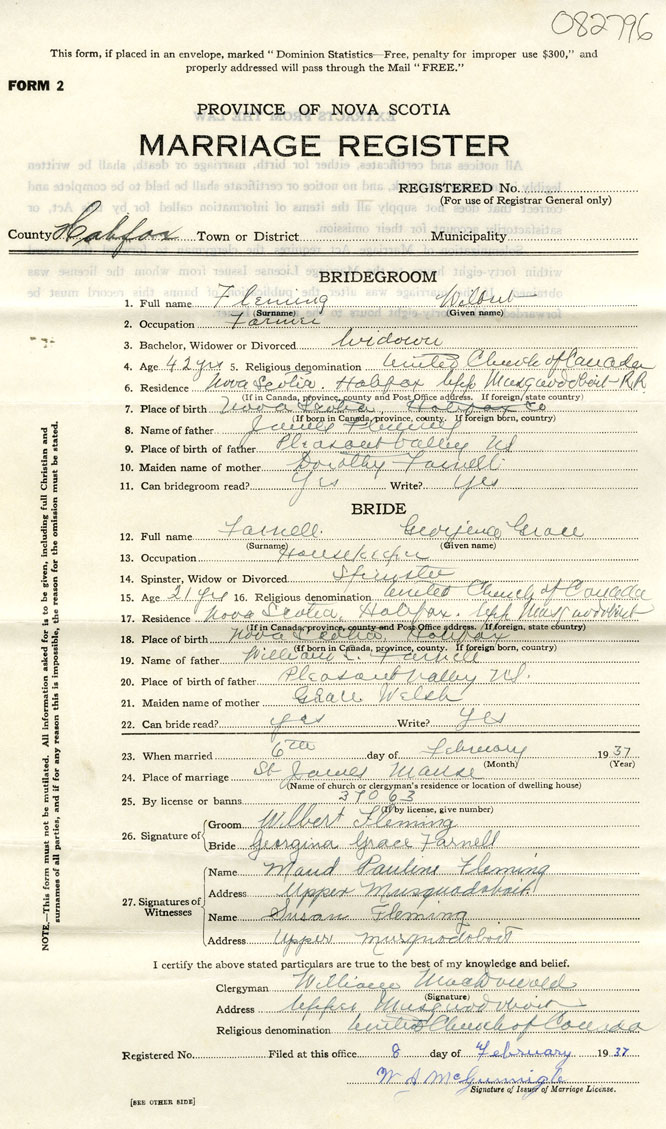 082796
This form, if placed in an envelope, marked "Dominion Statistics—Free, penalty for improper use $300," and
properly addressed will pass through the Mail "FREE."
FORM 2
PROVINCE OF NOVA SCOTIA
MARRIAGE REGISTER
REGISTERED No.
(For use of Registrar General only)
County Halifax Town or District Municipality
BRIDEGROOM
1. Full name Fleming Wilbert
(Surname) (Given name)
2. Occupation Farmer
3. Bachelor, Widower or Divorced Widower
4. Age 42 yrs 5. Religious denomination United Church of Canada
6. Residence Nova Scotia, Halifax Upp Musquodoboit-RR
(If in Canada, province, county and Post Office address. If foreign, state country)
7. Place of birth Nova Scotia, Halifax Co
(If born in Canada, province, county. If foreign born, country)
8. Name of father James Fleming
9. Place of birth of father Pleasant Valley NS
10. Maiden name of mother Dorothy Farnell
11. Can bridegroom read? Yes Write? Yes
BRIDE
12. Full name Farnell Georgina Grace
(Surname) (Given name)
13. Occupation Housekeeper
14. Spinster, Widow or Divorced Spinster
15. Age 21 yrs 16. Religious denomination United Church of Canada
17. Residence Nova Scotia, Halifax. Upp Musquodoboit
(If in Canada, province, county and Post Office address. If foreign, state country)
18. Place of birth Nova Scotia, Halifax
(If born in Canada, province, county. If foreign born, country)
19. Name of father William Farnell
20. Place of birth of father Pleasant Valley NS.
21. Maiden name of mother Grace Welsh
22. Can bride read? yes Write? Yes
23. When married 6th day of February 1937
(Month) (Year)
24. Place of marriage St James Manse
(Name of church or clergyman's residence or location of dwelling house)
25. By license or banns 37063
(If by license, give number)
26. Signature of Groom Wilbert Fleming
Bride Georgina Grace Farnell
27. Signatures of Witnesses
Name Maud Pauline Fleming
Address Upper Musquodoboit
Name Susan Fleming
Address Upper Musquodoboit
I certify the above stated particulars are true to the best of my knowledge and belief.
Clergyman William MacDonald
(Signature)
Address Upper Musquodoboit
Religious denomination United Church of Canada
Registered No. Filed at this office 8 day of February 1937
W
Signature of Issuer of Marriage License.
[SEE OTHER SIDE]
NOTE.—This form must not be mutilated. All information asked for is to be given, including full Christian and
surnames of all parties, and if for any reason this is impossible, the reason for the omission must be stated.